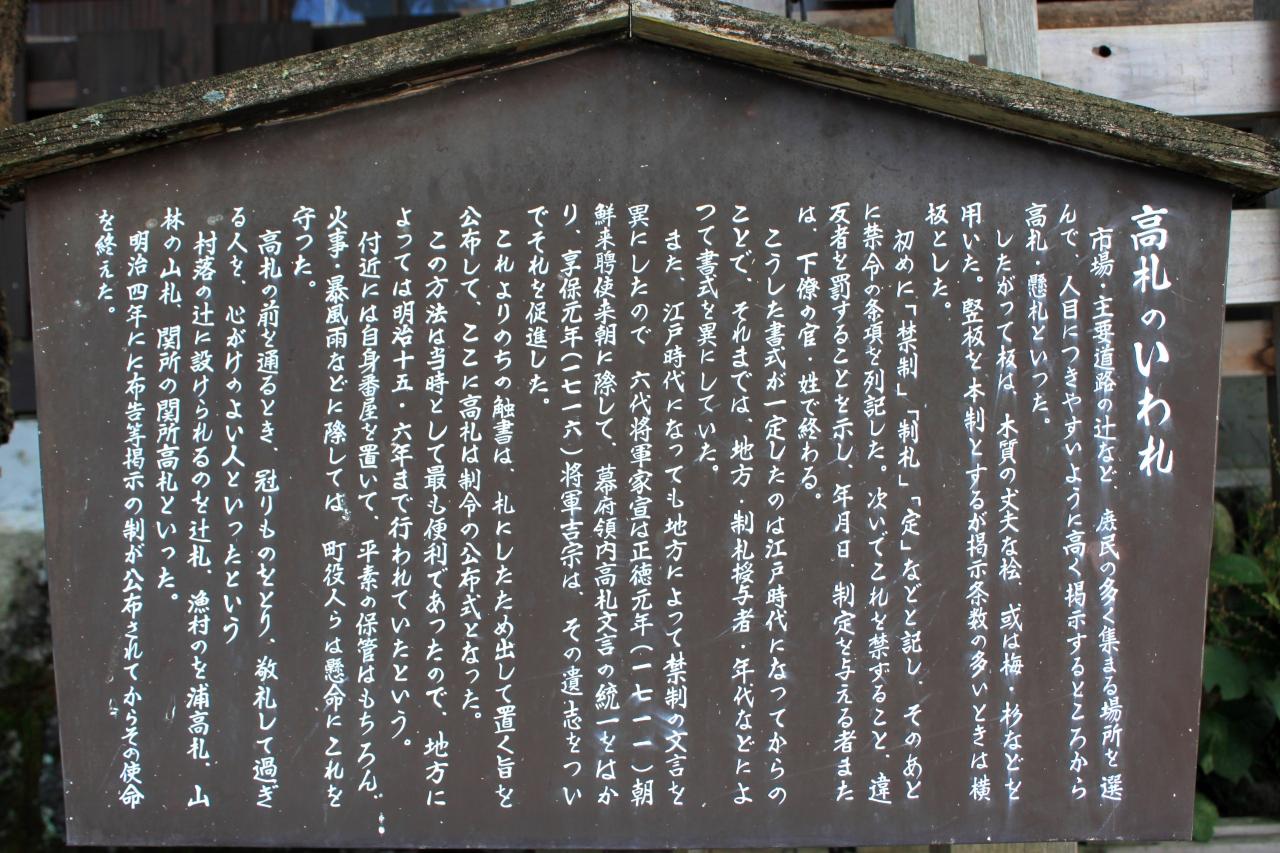 高札のいわれ
市場・主要道路の辻など、庶民の多く集まる場所を選
んで、人目につきやすいように高く掲示するところから
高札、懸札といった。
したがって板は、木質の丈夫な桧、或は梅・杉などを
用いた。竪板を本制とするが掲示条数の多いときは横
板とした。
初めに「禁制」「制札」「定」などと記し、そのあと
に禁令の条項を列記した。次いでこれを禁ずること、違
反者を罰することを示し、年月日、制定を与える者また
は、下僚の官・姓で終わる。
こうした書式が一定したのは江戸時代になってからの
ことで、それまでは、地方・制札授与者・年代などによ
つて書式を異にしていた。
また、江戸時代になっても地方によって禁制の文言を
異にしたので 六代将軍家宣は正徳元年(一七一一)朝
鮮来聘使来朝に際して、幕府領内高札文言の統一をはか
り、享保元年(一七一六)将軍吉宗は、その遺志をつい
でそれを促進した。
これよりのちの触書は、札にしたため出して置く旨を
公布して、ここに高札は制令の公布式となった。
この方法は当時として最も便利であったので、地方に
よっては明治十五・六年まで行われていたという。
付近には自身番屋を置いて、平素の保管はもちろん、
火事・暴風雨などに際しては、町役人らは懸命にこれを
守った。
高札の前を通るとき、冠りものをとり、敬礼して過ぎ
る人を、心がけのよい人といったという
村落の辻に設けられるのを辻札、漁村のを浦高札、山
林の山札、関所の関所高札といった。
明治四年にに布告等掲示の制が公布されてからその使命
を終えた。